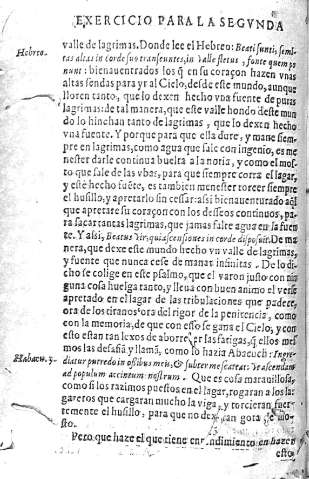 EXERCICIO PARA LA SEGVNDA
valle de lagrimas. Donde lee el Hebreo: Beati sunti, semi-
Hebreo.
tas altas in corde suo transeuntes, in Valle fletus, fonte quem po
nunt: bienauenturados los q̃ en su coraçon hazen vnas
altas sendas para yr al Cielo, desde este mundo, aunque
lloren tanto, que lo dexen hecho vna fuente de puras
lagrimas: de tal manera, que este valle hondo deste mun
do lo hinchan tanto de lagrimas, que lo dexen hecho
vna fuente. Y porque para que ella dure, y mane siem-
pre en lagrimas, como agua que sale con ingenio, es me
nester darle continua buelta a la noria, y como el mos-
to que sale de las vbas, para que siempre corra el lagar,
y estè hecho fuẽte, es tambien menester torcer siempre
el husillo, y apretarlo sin cessar: assi bienauenturado aq̃l
que apretare su coraçon con los desseos continuos, pa-
ra sacar tantas lagrimas, que jamas falte agua en la fuen
te. Y assi, Beatus vir, qui ascensiones in corde disposuit. De ma
nera, que dexe este mundo hecho vn valle de lagrimas,
y fuente que nunca cese de manar infinitas. De lo di-
cho se colige en este psalmo, que el varon justo con nin
guna cosa huelga tanto, y lleua con buen animo el verse
apretado en el lagar de las tribulaciones que padece,
ora de los tiranos, ora del rigor de la penitencia, como
con la memoria, de que con esto se gana el Cielo, y con
esto estan tan lexos de aborrer las fatigas, q̃ ellos mes
mos las desafiã y llamã, como lo hazia Abacuch: Ingre-
Habacu. 3.
diatur putredo in ossibus meis, & subter me scateat: Vt ascendam
ad populum accinctum nostrum. Que es cosa marauillosa,
como si los razimos puestos en el lagar, rogaran a los la-
gareros que cargaran mucho la viga, y torcieran fuer-
temente el husillo, para que no dexaran gota de mo-
sto.
Pero que haze el que tiene entendimiento en hazer
esto